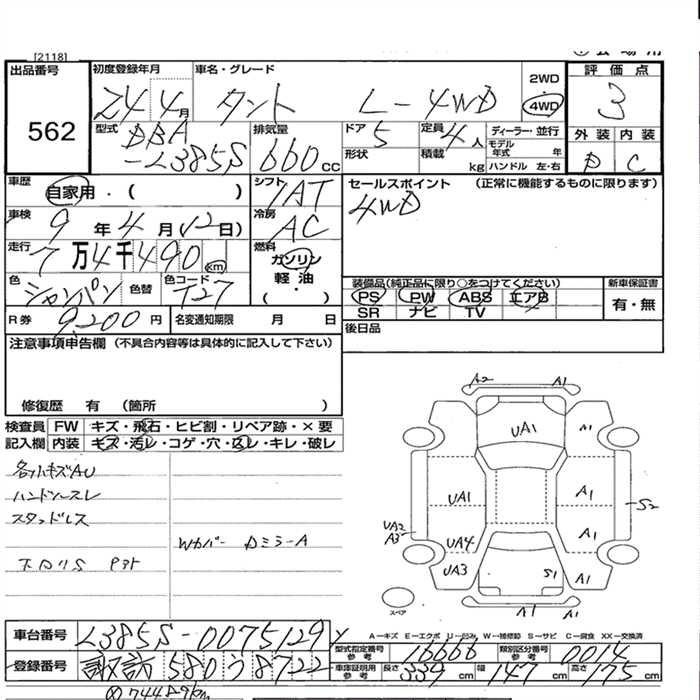 [2118]
出品番号 初度登録年月 車名・グレード 2WD 評価点
562 24 4月 タント L-4WD 4WD 3
型式 DBA-L385S 排気量 660cc ドア 5 定員 4人 ディーラー・並行 外装 内装
形状 積載 kg モデル年式 年 ハンドル 左・右 D C
車歴 自家用・( ) シフト 7AT セールスポイント (正常に機能するものに限ります)
車検 9年4月12日) 冷房 AC 4WD
走行 7万4千490km 燃料 ガソリン
軽油
( ・ )
色 シャンパン 色替 色コード T27 装備品(純正品に限り○をつけてください) 新車保証書
PS PW ABS エアB 有・無
SR ナビ TV
R券 9,200円 名変通知期限 月 日 後日品
注意事項申告欄 (不具合内容等は具体的に記入して下さい)
修復歴 有 (箇所 )
検査員 FW キズ・飛石・ヒビ割・リペア跡・×要
記入欄 内装 キズ・汚レ・コゲ・穴・スレ・キレ・破レ
A2 A1
UA1 A1
UA1 A1 S2
UA2
A3 UA4 A1
UA3 S1 A1
A1 A1
スペア
各ソトキズAU
ハンドルスレ
スタッドレス
Wカバー Dミラー A
A-キズ E-エクボ U-凹み W-補修跡 S-サビ C-腐食 XX-交換済
車台番号 L385S-0075129 型式指定番号 参考 16666 類別区分番号 参考 0014
登録番号 諏訪 580 う 8722 車庫証明用 参考 長さ 339cm 幅 147cm 高さ 175cm